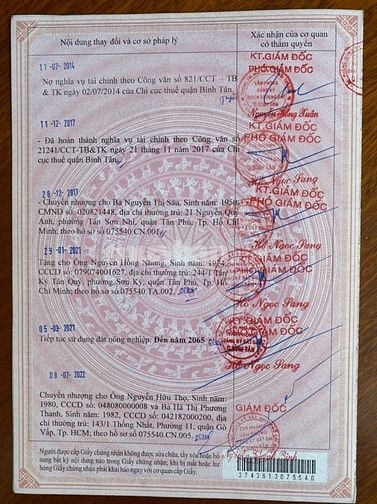 Nội dung thay đổi và cơ sở pháp lý
Xác nhận của cơ quan
có thẩm quyền
11-07-2014
Nợ nghĩa vụ tài chính theo Công văn số 821/CCT – TB
& TK ngày 02/07/2014 của Chi cục thuế quận Bình Tân.
KT.GIÁM ĐỐC
PHÓ GIÁM ĐỐC
Nguyễn Hồng Xuân
11-12-2017
- Đã hoàn thành nghĩa vụ tài chính theo Công văn số
21241/CCT-TB&TK ngày 21 tháng 11 năm 2017 của Chi
cục thuế quận Bình Tân.
KT.GIÁM ĐỐC
PHÓ GIÁM ĐỐC
Hồ Ngọc Sang
28-12-2017
- Chuyển nhượng cho Bà Nguyễn Thị Sâu, Sinh năm: 1950,
CMND số: 020821448, địa chỉ thường trú: 21 Nguyễn Quý
Anh, phường Tân Sơn Nhì, quận Tân Phú, Tp. Hồ Chí
Minh; theo hồ sơ số 075540.CN.001
KT.GIÁM ĐỐC
PHÓ GIÁM ĐỐC
Hồ Ngọc Sang
29-01-2021
Tặng cho Ông Nguyễn Hồng Nhơng, Sinh năm: 1974,
CCCD số: 079074001627, địa chỉ thường trú: 244/1 Tân
Kỳ Tân Quý, phường Sơn Kỳ, quận Tân Phú, Tp. Hồ
Chí Minh; theo hồ sơ số 075540.TA.002.
KT.GIÁM ĐỐC
PHÓ GIÁM ĐỐC
Hồ Ngọc Sang
05-03-2021
Tiếp tục sử dụng đất nông nghiệp: Đến năm 2065
KT.GIÁM ĐỐC
PHÓ GIÁM ĐỐC
Hồ Ngọc Sang
08-07-2022
Chuyển nhượng cho Ông Nguyễn Hữu Thọ, Sinh năm:
1980, CCCD số: 048080000008 và Bà Hà Thị Phương
Thanh, Sinh năm: 1982, CCCD số: 042182000200, địa chỉ
thường trú: 143/1 Thống Nhất, Phường 11, quận Gò
Vấp, Tp. HCM; theo hồ sơ số 075540.CN.005.
GIÁM ĐỐC
Người được cấp Giấy chứng nhận không được sửa chữa, tẩy xóa hoặc bổ
sung bất kỳ nội dung nào trong Giấy chứng nhận; khi bị mất hoặc hư
hỏng Giấy chứng nhận phải khai báo ngay với cơ quan cấp Giấy.
2743813075540